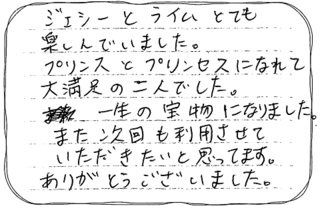 ジェシーとライムとても
楽しんでいました。
プリンスとプリンセスになれて
大満足の二人でした。
一生の宝物になりました。
また次回も利用させて
いただきたいと思ってます。
ありがとうございました。